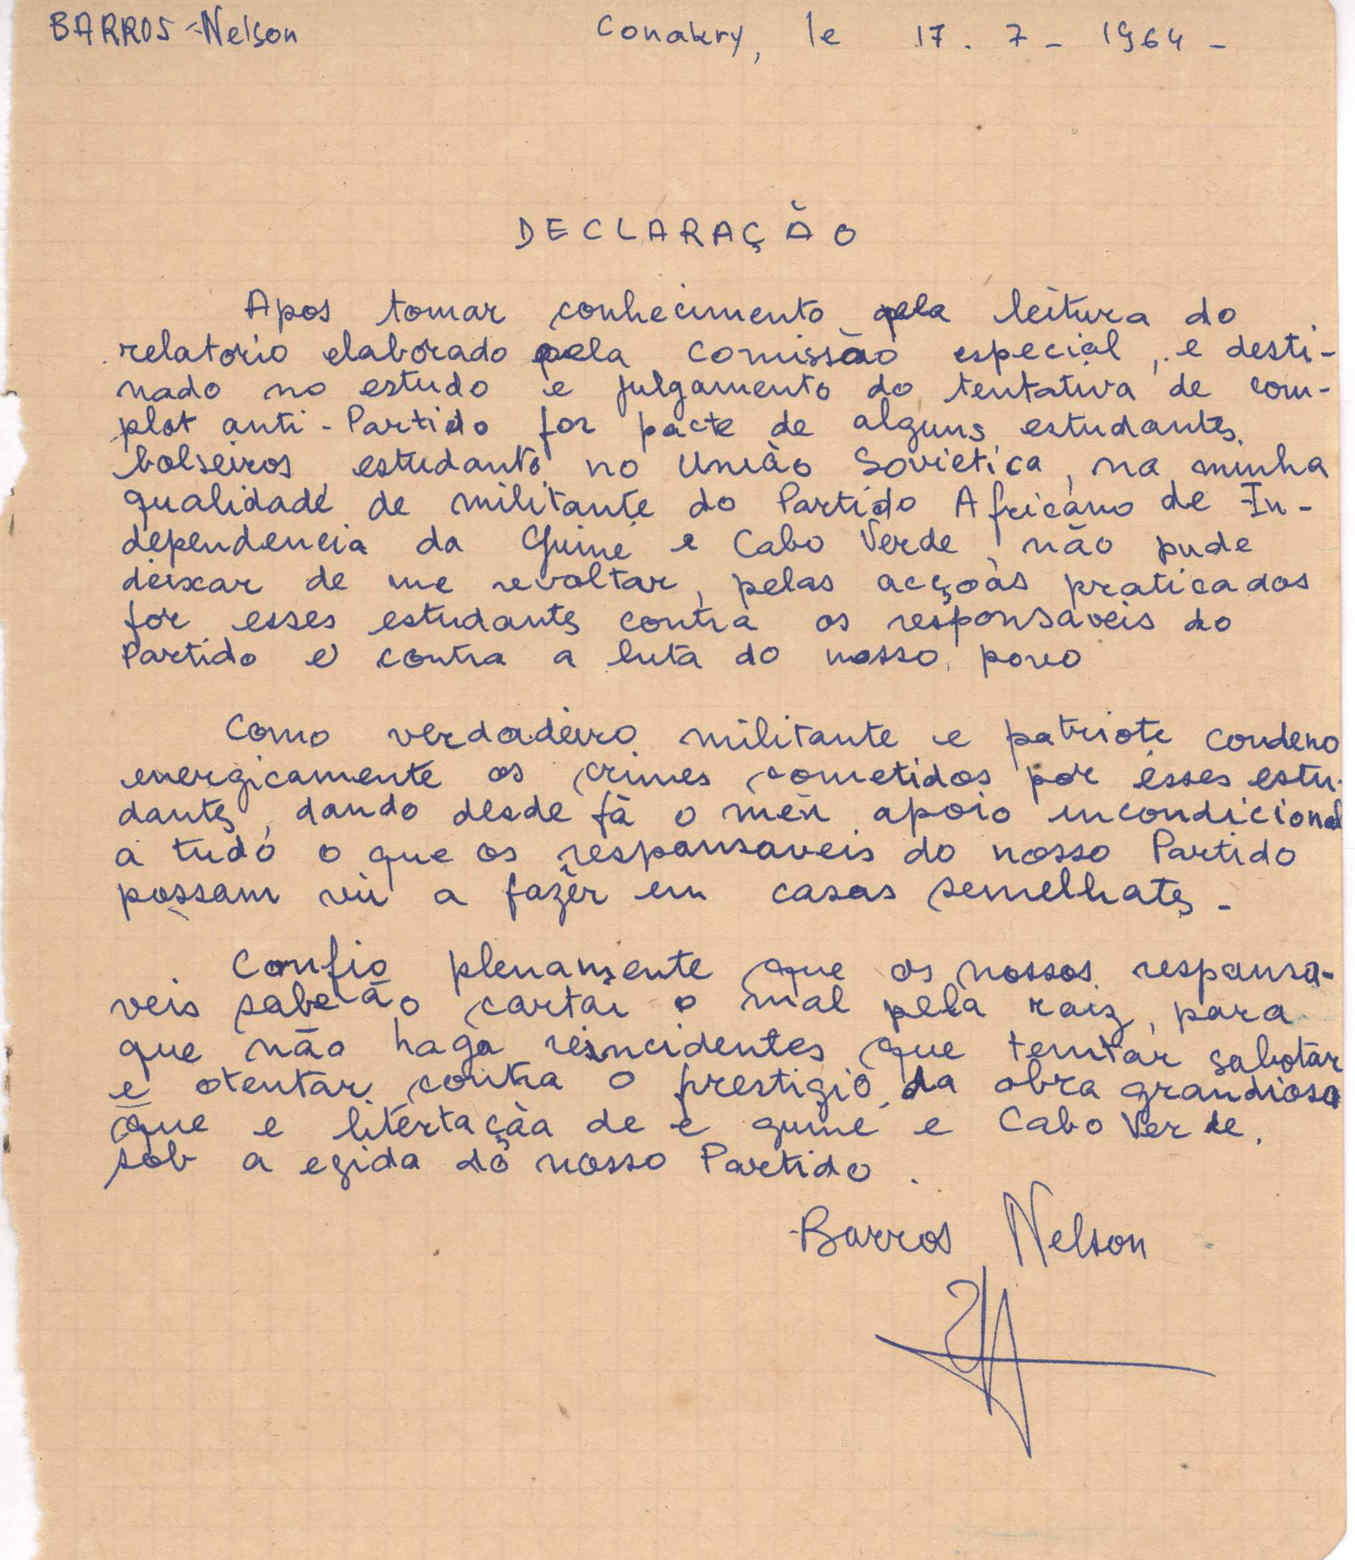 BARROS - Nelson
Conakry, le 17 . 7 - 1964 -
DECLARAÇÃO
Apos tomar conhecimento pela leitura do
relatorio elaborado pela comissão especial, e desti-
nado no estudo e julgamento do tentativa de com-
plot anti-Partido por parte de alguns estudantes
bolseiros estudants no União Sovietica, na minha
qualidade de militante do Partido Africano de In-
dependencia da Guiné e Cabo Verde não pude
deixar de me revoltar, pelas acções praticados
por esses estudantes contra os responsaveis do
Partido e contra a luta do nosso povo
Como verdadeiro militante e patriote condeno
energicamente os crimes cometidos por esses estu-
dantes, dando desde já o meu apoio incondicional
a tudo o que os responsaveis do nosso Partido
possam vir a fazêr em casos semelhates -
Confio plenamente que os nossos responsa-
veis saberão cortar o mal pela raiz, para
que não haga reincidentes que tentar sabotar
e atentar contra o prestigio da obra grandiosa
que e libertação de e guiné e Cabo Verde,
sob a egida do nosso Partido .
Barros Nelson